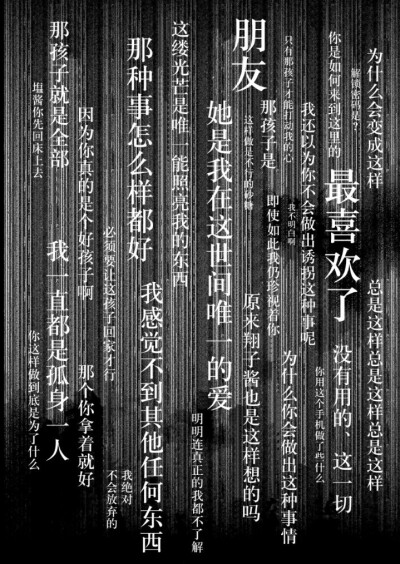 为什么会变成这样
解锁密码是？
你是如何来到这里的
最喜欢了
总是这样总是这样总是这样
没有用的、这一切
你用这个手机做了些什么
只有那孩子才能打动我的心
我还以为你不会做出诱拐这种事呢
我不明白啊
为什么你会做出这种事情
朋友
那孩子是
即使如此我仍珍视着你
这样做是不行的砂糖
原来翔子酱也是这样想的吗
她是我在这世间唯一的爱
明明连真正的我都不了解
这缕光芒是唯一能照亮我的东西
那种事怎么样都好
我感觉不到其他任何东西
必须要让这孩子回家才行
我绝对
不会放弃的
因为你真的是个好孩子啊
那个你拿着就好
那孩子就是全部
我一直都是孤身一人
塩酱你先回床上去
你这样做到底是为了什么